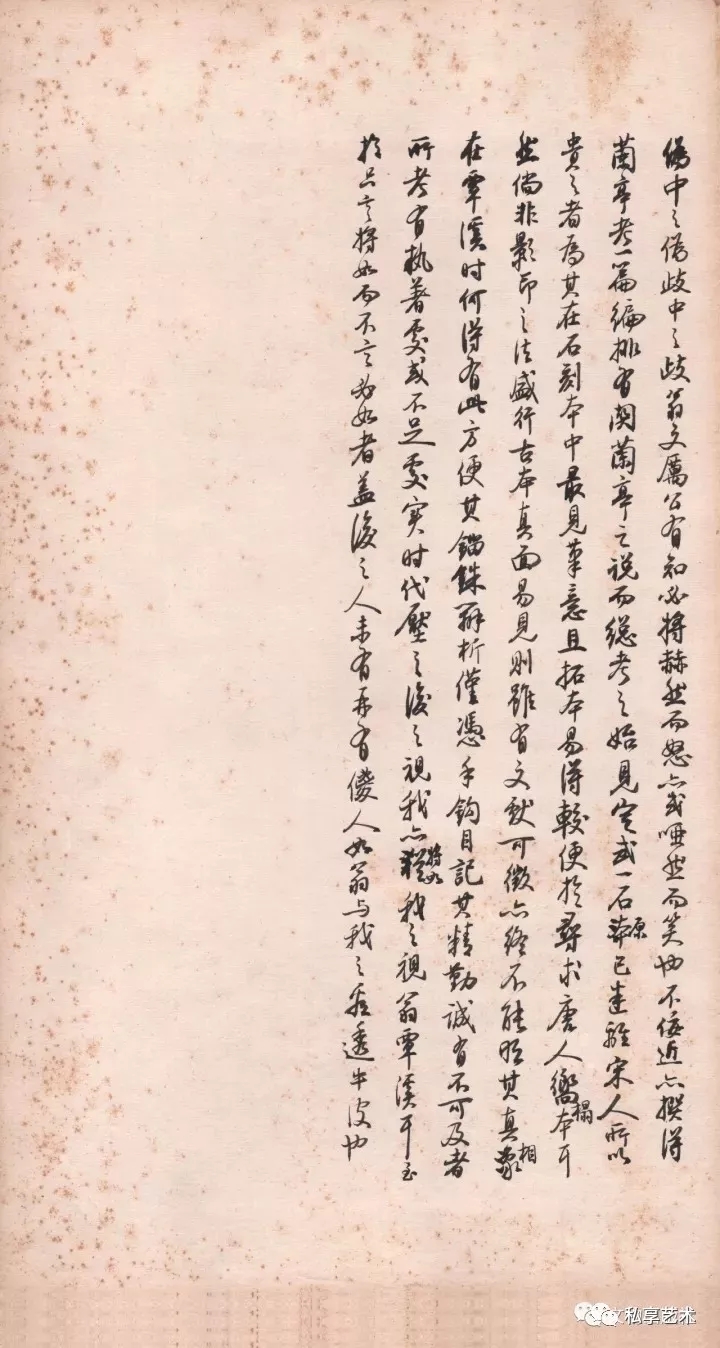 偽中之偽歧中之歧翁文厲公有知必將赫然而怒亦或啞然而笑也不佞近亦撰得
蘭亭考一篇編排有関蘭亭之说而總考之始見定武一石原已走離宋人所以
貴之者為其在石刻本中最見筆意且拓本易得較便於尋求唐人嚮搨本耳
然倘非影印之法盛行古本真面易見則雖有文獻可徵亦終不能明其真相
在覃溪时何得有此方便其錙銖辨析僅憑手鈎目記其精勤誠有不可及者
所考有執著處或不足處实时代壓之後之視我亦將如我之視翁覃溪耳至
於只言將如而不言必如者蓋後之人未有再有儍人如翁与我之看透牛皮也
私享艺术